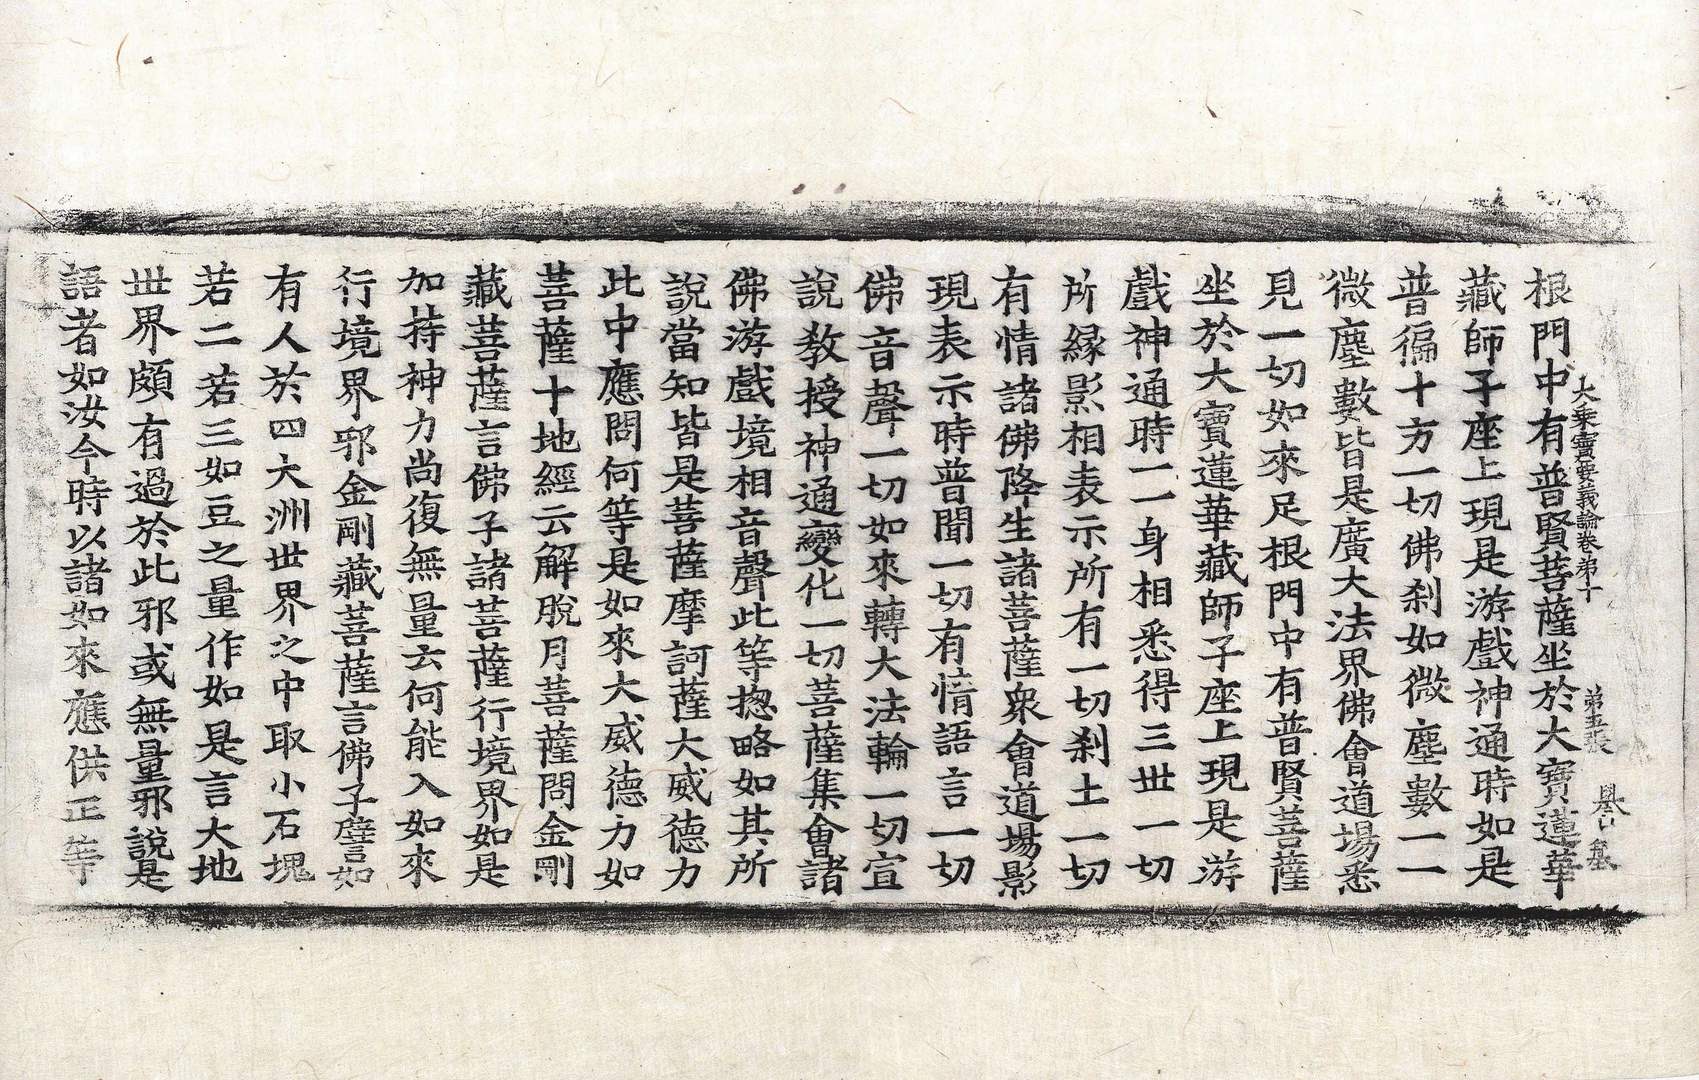 大乗寶要義論卷第十 第五張
根門中有普賢菩薩坐於大寶蓮華
藏師子座上現是游戲神通時如是
普徧十方一切佛刹如微塵數一一
微塵數皆是廣大法界佛會道場悉
見一切如來足根門中有普賢菩薩
坐於大寶蓮華藏師子座上現是游
戲神通時一一身相悉得三世一切
所緣影相表示所有一切刹土一切
有情諸佛降生諸菩薩衆會道場影
現表示時普聞一切有情語言一切
佛音聲一切如來轉大法輪一切宣
說教授神通變化一切菩薩集會諸
佛游戲境相音聲此等揔略如其所
說當知皆是菩薩摩訶薩大威德力
此中應問何等是如來大威德力如
菩薩十地經云解脫月菩薩問金剛
藏菩薩言佛子諸菩薩行境界如是
加持神力尚復無量云何能入如來
行境界邪金剛藏菩薩言佛子譬如
有人於四大洲世界之中取小石塊
若二若三如豆之量作如是言大地
世界頗有過於此邪或無量邪說是
語者如汝今時以諸如來應供正等